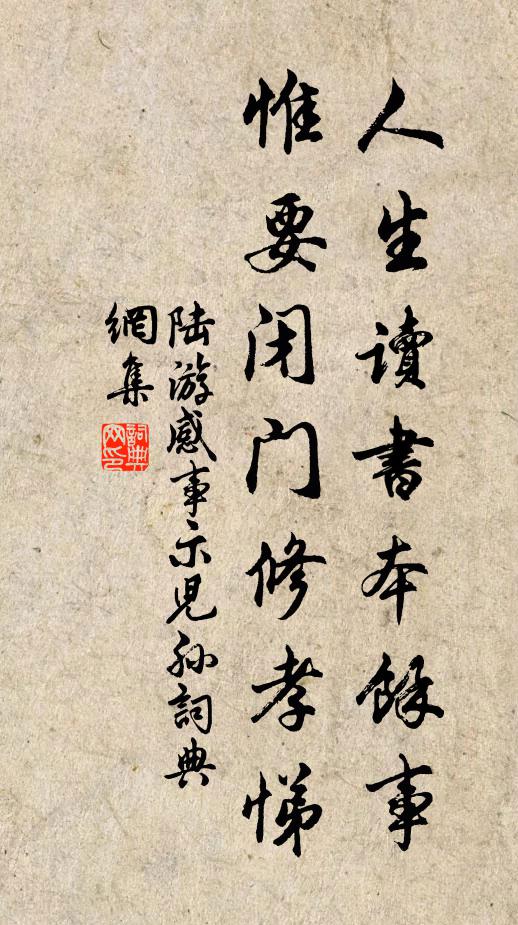 人生讀書本餘事
惟要闭門修孝悌
陆游感事示児孙詞典
網集
詞典
网印